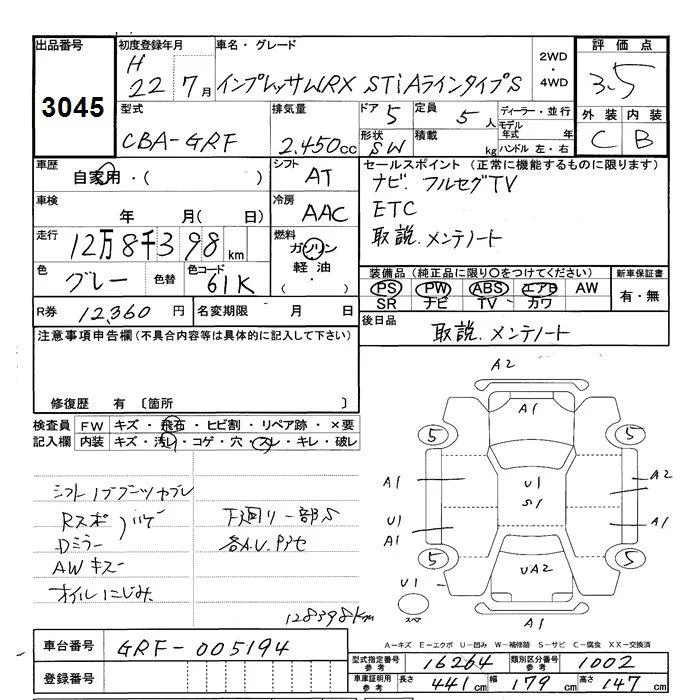 出品番号
3045
初度登録年月
H
22 7月
車名・グレード
インプレッサWRX STi Aラインタイプ S
2WD
・
4WD
評価点
3.5
外装 内装
C B
型式
CBA-GRF
排気量
2.450cc
ドア 5
形状 SW
定員 5人
積載 kg
ディーラー・並行
モデル年式 年
ハンドル 左・右
車歴
自家用・( )
シフト
AT
車検
年 月( 日)
冷房
AAC
走行
12万8千398km
燃料
ガソリン
軽油
・( )
色
グレー 色替
色コード
61K
R券 12,360円
名変期限 月 日
セールスポイント(正常に機能するものに限ります)
ナビ. フルセグTV
ETC
取説. メンテノート
装備品(純正品に限り○をつけてください)
PS PW ABS エアB AW
SR ナビ TV カワ
新車保証書
有・無
後日品 取説. メンテノート
注意事項申告欄(不具合内容等は具体的に記入して下さい)
修復歴 有〔箇所 〕
検査員記入欄
FW キズ・飛石・ヒビ割・リペア跡・×要
内装 キズ・汚れ・コゲ・穴・スレ・キレ・破レ
シフトノブブーツヤブレ
Rスポ
Dミラー
AWキズ
オイルにじみ.
下廻り一部S
各A.U.
128398km
A2
A1
5
5
A1
U1
S1
A2
U1
A1
A1
5
5
UA2
U1
スペア
A1
A-キズ E-エクボ U-凹み W-補修跡 S-サビ C-腐食 XX-交換済
車台番号 GRF-005194
登録番号
型式指定番号参考 16264
類別区分番号参考 1002
車庫証明用参考 長さ 441cm 幅 179cm 高さ 147cm